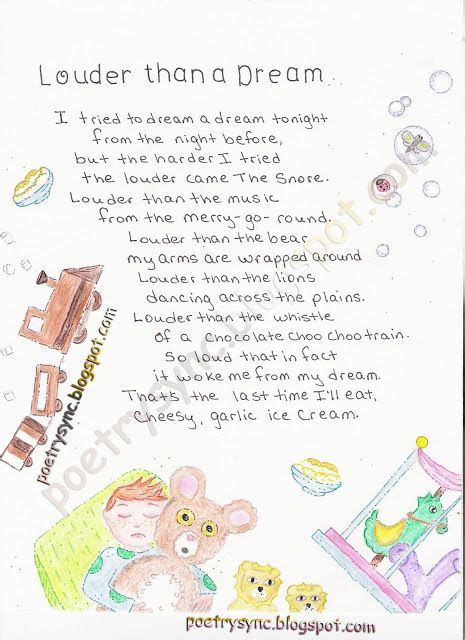 Louder than a Dream
I tried to dream a dream tonight
from the night before,
but the harder I tried
the louder came The Snore.
Louder than the music
from the merry-go-round.
Louder than the bear
my arms are wrapped around
Louder than the lions
dancing across the plains.
Louder than the whistle
of a chocolate choo choo train.
So loud that in fact
it woke me from my dream.
That's the last time I'll eat,
Cheesy, garlic ice cream.
poetrysync.blogspot.com
poetrysync.blogspot.com
poetrysync.blogspot.com